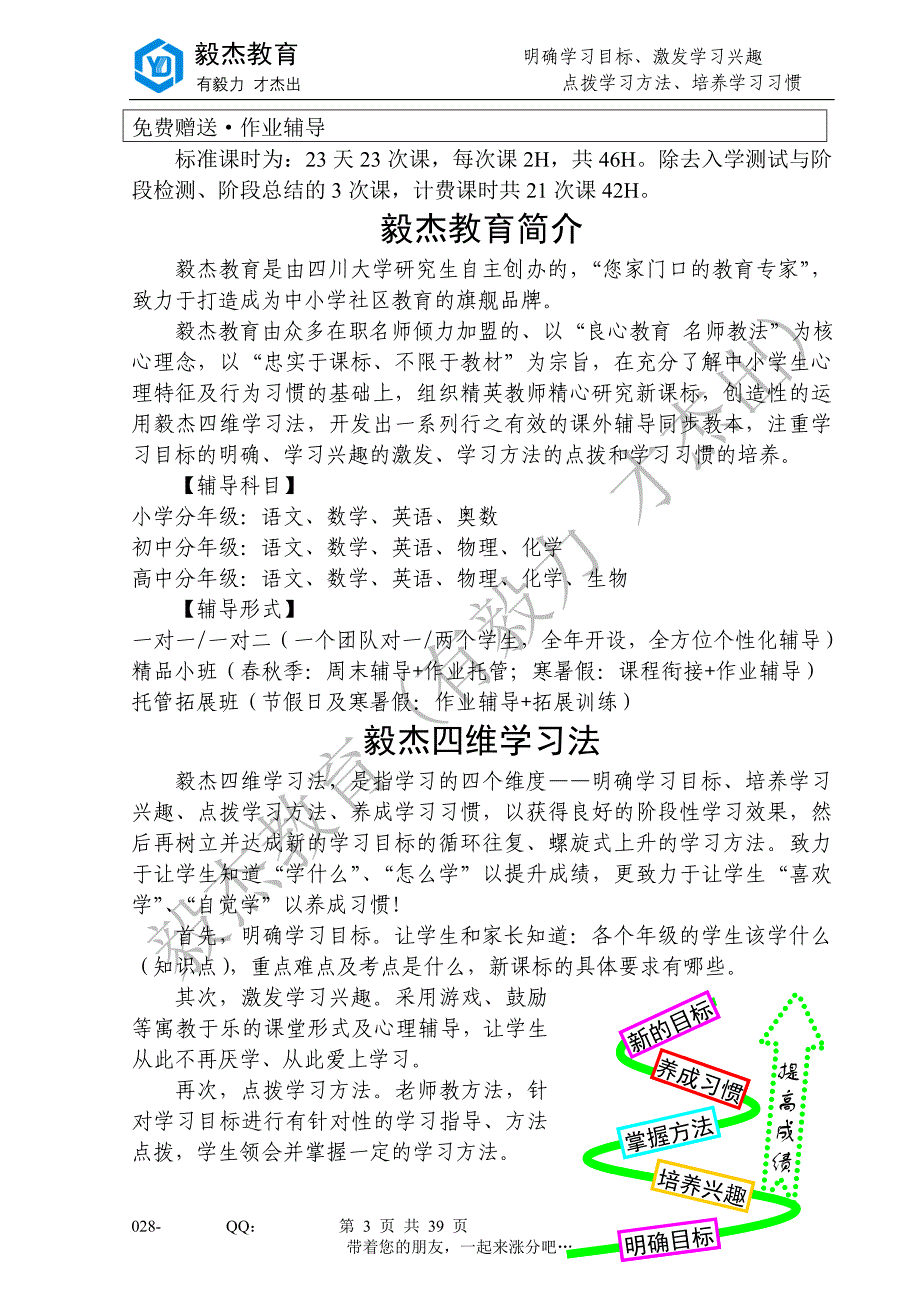 毅杰教育
有毅力 才杰出
明确学习目标、激发学习兴趣
点拨学习方法、培养学习习惯
免费赠送·作业辅导
标准课时为：23 天 23 次课，每次课 2H，共 46H。除去入学测试与阶
段检测、阶段总结的 3 次课，计费课时共 21 次课 42H。
毅杰教育简介
毅杰教育是由四川大学研究生自主创办的，“您家门口的教育专家”，
致力于打造成为中小学社区教育的旗舰品牌。
毅杰教育由众多在职名师倾力加盟的、以“良心教育 名师教法”为核
心理念，以“忠实于课标、不限于教材”为宗旨，在充分了解中小学生心
理特征及行为习惯的基础上，组织精英教师精心研究新课标，创造性的运
用毅杰四维学习法，开发出一系列行之有效的课外辅导同步教本，注重学
习目标的明确、学习兴趣的激发、学习方法的点拨和学习习惯的培养。
【辅导科目】
小学分年级：语文、数学、英语、奥数
初中分年级：语文、数学、英语、物理、化学
高中分年级：语文、数学、英语、物理、化学、生物
【辅导形式】
一对一/一对二（一个团队对一/两个学生，全年开设，全方位个性化辅导）
精品小班（春秋季：周末辅导+作业托管；寒暑假：课程衔接+作业辅导）
托管拓展班（节假日及寒暑假：作业辅导+拓展训练）
毅杰四维学习法
毅杰四维学习法，是指学习的四个维度——明确学习目标、培养学习
兴趣、点拨学习方法、养成学习习惯，以获得良好的阶段性学习效果，然
后再树立并达成新的学习目标的循环往复、螺旋式上升的学习方法。致力
于让学生知道“学什么”、“怎么学”以提升成绩，更致力于让学生“喜欢
学”、“自觉学”以养成习惯！
首先，明确学习目标。让学生和家长知道：各个年级的学生该学什么
（知识点），重点难点及考点是什么，新课标的具体要求有哪些。
其次，激发学习兴趣。采用游戏、鼓励
等寓教于乐的课堂形式及心理辅导，让学生
从此不再厌学、从此爱上学习。
再次，点拨学习方法。老师教方法，针
对学习目标进行有针对性的学习指导、方法
点拨，学生领会并掌握一定的学习方法。
新的目标
养成习惯
掌握方法
培养兴趣
明确目标
提高成绩
毅杰教育（有毅力 才杰出）
028- QQ： 第 3 页 共 39 页
带着您的朋友，一起来涨分吧…